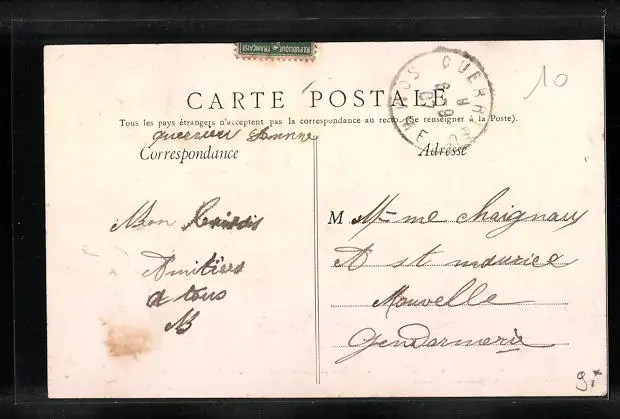 REPUBLIQUE FRANÇAISE
10
CARTE POSTALE
Tous les pays étrangers n'acceptent pas la correspondance au recto. (Se renseigner à la Poste).
Correspondance
Adresse
Mon
Amitiées
a tous
M
M Mme Chaignaux
A st maurice
Nouvelle
Gendarmerie